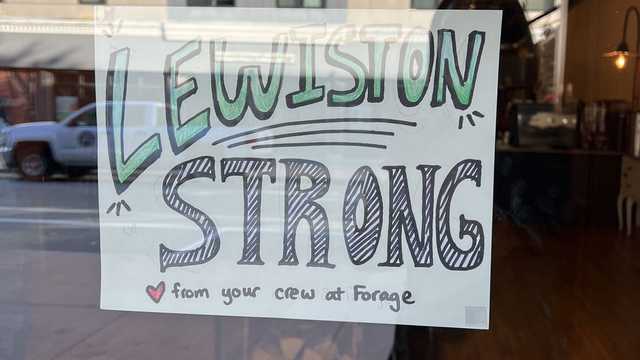 LEWISTON
STRONG
from your crew at Forage